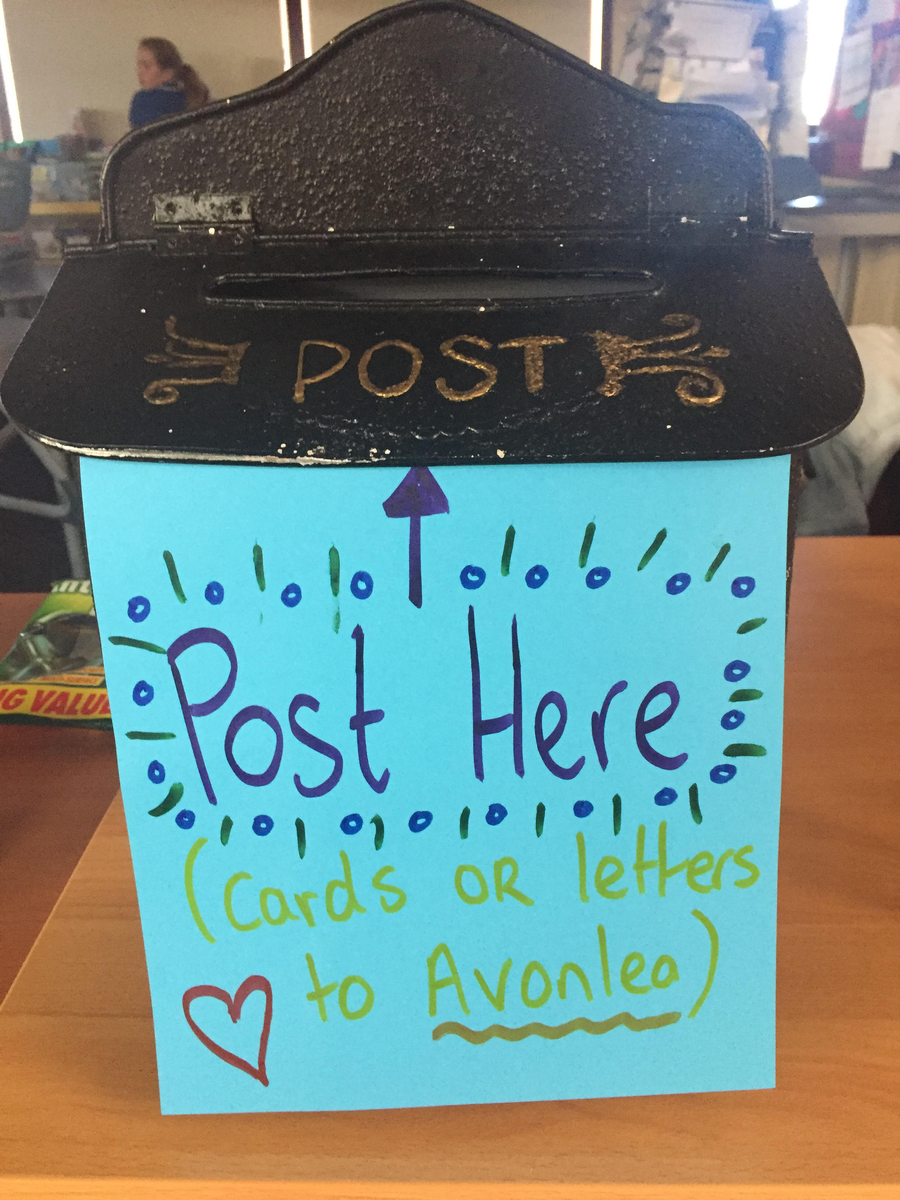 POST
Post Here
(cards OR letters
to Avonlea)
G VALUE